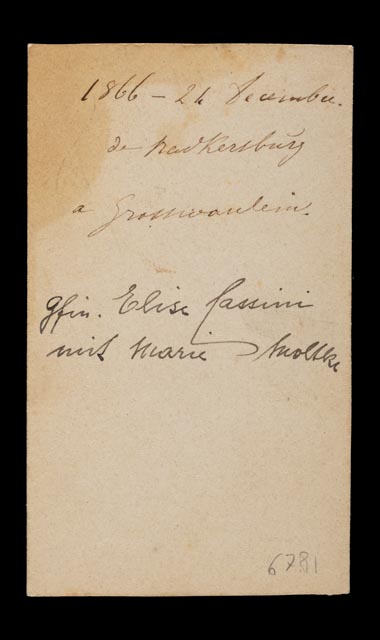 1866 – 24 Decembre.
de Radkersburg
a Grosswardein.
gfin. Elise Cassini
mit Marie Moltke
6781